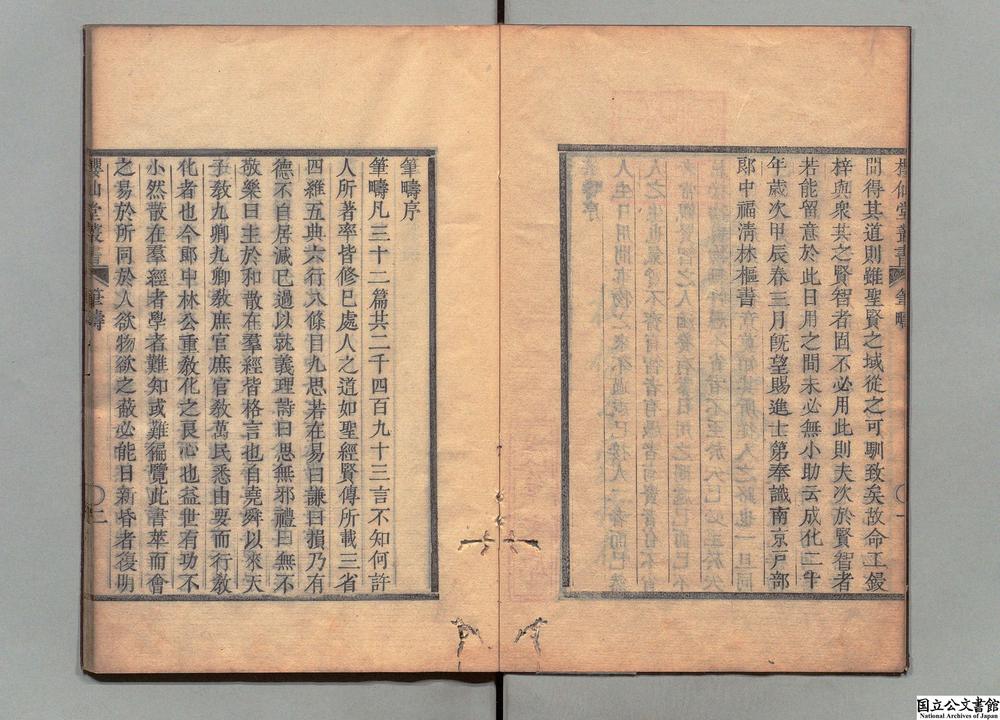 間得其道則雖聖賢之域從之可馴致矣故命工鋟
梓與衆共之賢智者固不必用此則夫次於賢智者
若能留意於此日用之間未必無小助云成化二十
年歲次甲辰春三月旣望賜進士第奉議南京戸部
郎中福淸林樞書
筆疇
一
筆疇序
筆疇凡三十二篇共二千四百九十三言不知何許
人所著率皆修已處人之道如聖經賢傳所載三省
四維五典六行八條目九思若在易曰謙曰損乃有
德不自居滅已過以就義理詩曰思無邪禮曰無不
敬樂曰主於和散在羣經皆格言也自堯舜以來天
子敎九卿九卿敎庶官庶官敎萬民悉由要而行敎
化者也今郎中林公重敎化之良心也益世有功不
小然散在羣經者學者難知或難徧覽此書萃而會
之易於所同於人欲物欲之蔽必能日新昏者復明
仙堂叢書
筆疇
二
国立公文書館
National Archives of Japan